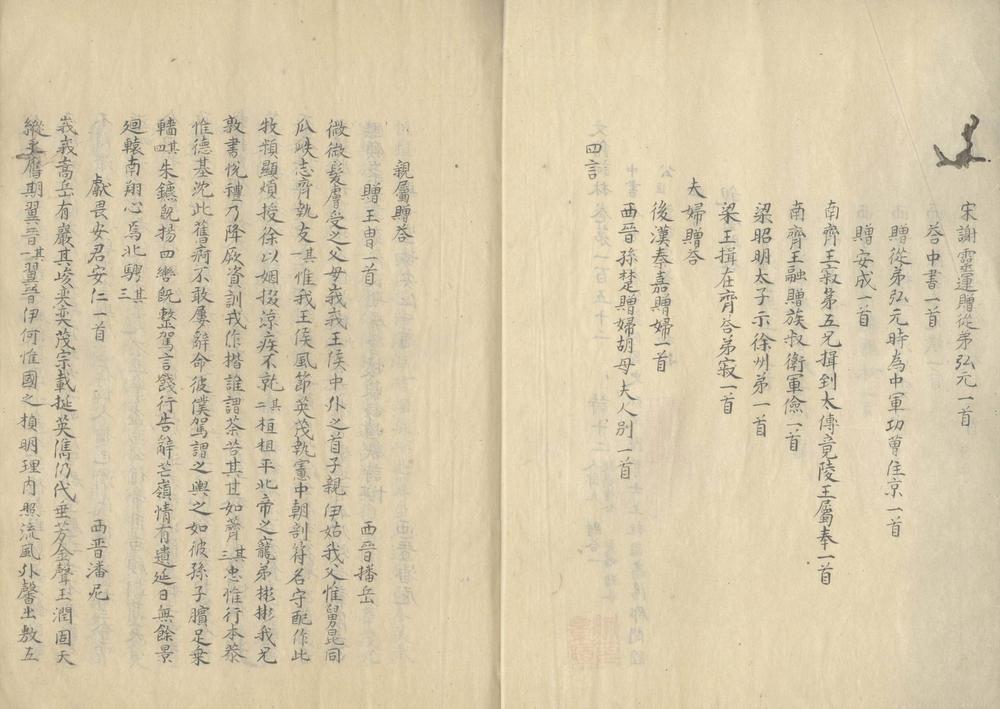 宋謝靈運贈從弟弘元一首
荅中書一首
贈從弟弘元時為中軍功曹住京一首
贈安成一首
南齊王寂第五兄揖到太傅竟陵王屬奉一首
南齊王融贈族叔衛軍儉一首
梁昭明太子示徐州弟一首
梁王揖在齊荅弟寂一首
後漢秦嘉贈婦一首
夫婦贈荅
西晉孫楚贈婦胡母夫人別一首
四言
親屬贈荅
贈王冑一首 西晉播岳
微微髮膚受之父母峩峩王侯中外之首子親伊姑我父惟舅昆同
瓜瓞志齊執友一其惟我王侯風節英茂執憲中朝剖符名守酏作此
牧頻顯煩授徐以姻掇涼疾不就二其桓桓平北帝之寵弟彬彬我兄
敦書悅禮乃降厥資訓我作揩誰謂荼苦其甘如薺三其忠惟行本恭
惟德基沈此舊痾不敢屢辭命彼僕駕謂之輿之如彼孫子臏足乗
轓四其朱鑣既揚四轡既整駕言餞行告辭芒嶺情有遺延日無餘景
廻轅南翔心焉北騁三其
獻畏安君安仁一首 西晉潘尼
峩峩嵩岳有巖其峻奕奕茂宗載挻英儁仍代垂芳金聲王潤固天
縱之應期翼晉一其翼晉伊何惟國之楨明理內照流風外馨出敷五